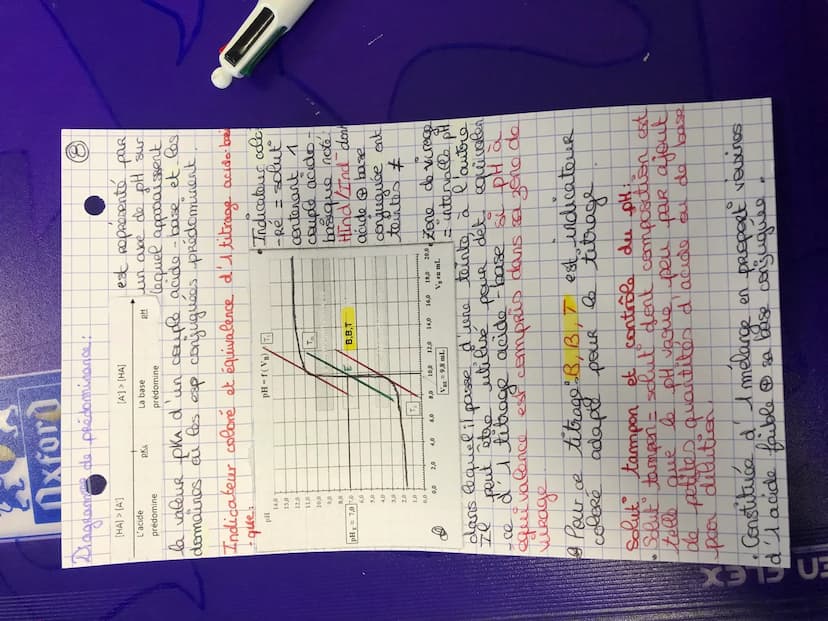 8
Diagramme de prédominance:
[HA] > [A⁻]
[A⁻] > [HA]
L'acide
prédomine
pKA
La base
prédomine
pH
est représenté par
un axe de pH sur
lequel apparaissent
la valeur pKA d'un couple acide-base et les
domaines où les esp conjuguées prédominent.
Indicateur coloré et équivalence d'1 titrage acido-basi
-que:
pH = f ( VB )
pH
14,0
13,0
12,0
11,0
10,0
9,0
8,0
pHE = 7,0
7,0
6,0
5,0
4,0
3,0
2,0
1,0
0,0
0,0 2,0 4,0 6,0 8,0 10,0 12,0 14,0 16,0 18,0 20,0
VB en mL
VBE = 9,8 mL
T1
T2
E
B,B,T
Indicateur colo
-ré = solut°
contenant 1
couple acido-
basique noté:
HInd/Ind⁻ dont
acide ⊕ base
conjuguée ont
teintes ≠
Zone de virage
= intervalle pH
dans lequel il passe d'une teinte à l'autre
Il peut être utilisé pour dét. équivalen
-ce d'1 titrage acide-base si pH à
équivalence est compris dans sa zone de
virage.
Pour ce titrage: B,B,T est indicateur
coloré adapté pour le titrage.
Solut° tampon et contrôle du pH:
• Solut° tampon = solut° dont composition est
telle que le pH varie peu par ajout
de petites quantités d'acide ou de base
par dilution.
• Constituée d'1 mélange en proport° voisines
d'1 acide faible ⊕ sa base conjuguée.
Oxford